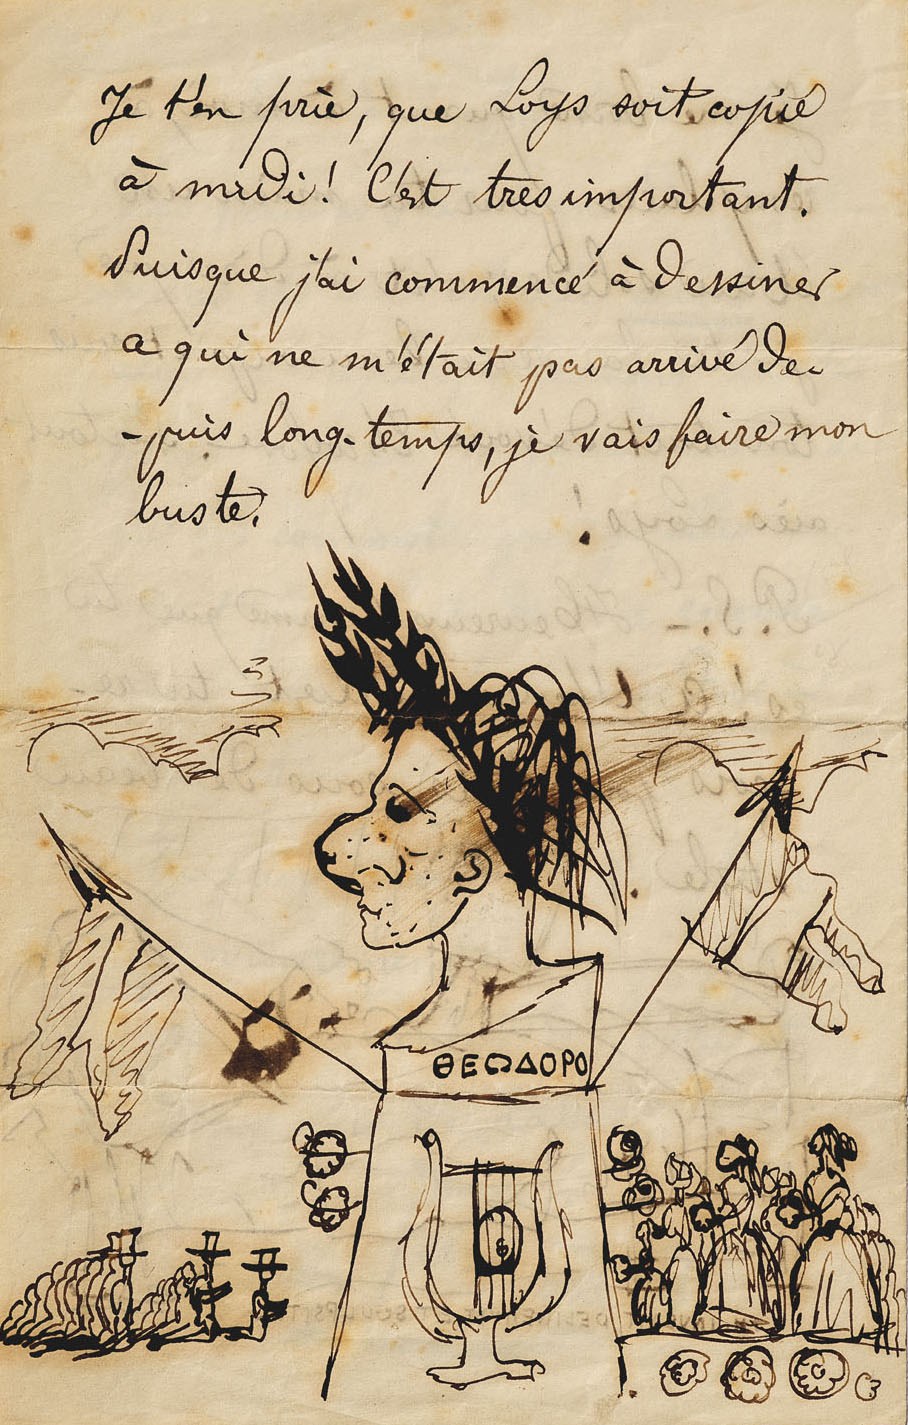 Je t'en prie, que Loys soit copié
à midi! C'est tres important.
Puisque j'ai commencé à dessiner
a qui ne m'était pas arrivé de-
-puis long-temps, je vais faire mon
buste.
ΘΕΩΔΟΡΟ